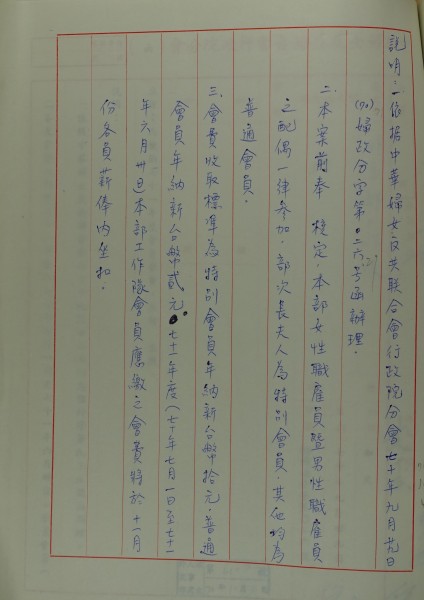 說明:一、依据中華婦女反共联合會行政院分會七十年九月廿九日
(70)婦政分字第0二六号函辦理.
二、本案前奉 核定.本部女性職雇員暨男性職雇員
之配偶一律参加.部次長夫人為特別會員.其他均為
普通會員.
三、會費收取標準為特別會員年納新台幣拾元.普通
會員年納新台幣貳元。七十一年度(七十年七月一日至七十一
年六月卅日)本部工作隊會員應繳之會費將於十一月
份各員薪俸內坐扣.